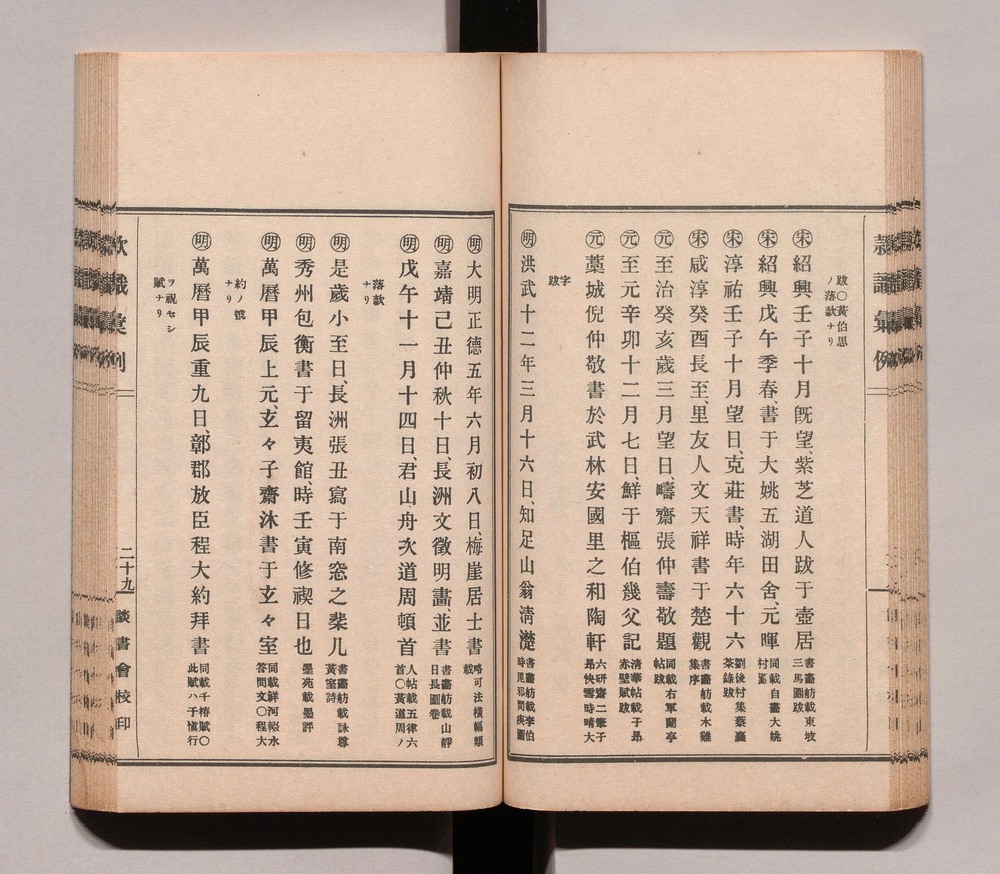 跋〇黃伯思
ノ落款ナリ
㊟宋 紹興壬子十月旣望、紫芝道人跋于壺居
書畵舫載東坡
三馬圖跋
宋 紹興戊午季春、書于大姚五湖田舍、元暉
同載自畵大姚
村圖
宋 淳祐壬子十月望日、克莊書、時年六十六
劉後村集蔡襄
茶錄跋
宋 咸淳癸酉長至、里友人文天祥書于楚觀
書畵舫載木雞
集序
元 至治癸亥歲三月望日、疇齋張仲壽敬題
同載右軍蘭亭
帖跋
元 至元辛卯十二月七日、鮮于樞伯幾父記
淸華帖載子昻
赤壁賦跋
元 藁城倪仲敬書於武林安國里之和陶軒
六硏齋二筆子
昻快雪時晴大
字
跋
明 洪武十二年三月十六日、知足山翁淸濋
書畵舫載李伯
大明正德五年六月初八日、梅崖居士書
略可法橫幅類
載
明 嘉靖己丑仲秋十日、長洲文徵明畵、並書
書畵舫載山靜
日長圖卷
明 戊午十一月十四日、君山舟次道周頓首
人帖載五律六
首〇黃道周ノ
落款
ナリ
明 是歲小至日、長洲張丑寫于南窓之棐几
書畵舫載詠尊
黃室詩
明 秀州包衡書于留夷館、時壬寅修禊日也
墨苑載墨評
明 萬曆甲辰上元、玄々子齋沐書于玄々室
同載祥河輟水
答問文〇程大
約ノ號
ナリ
明 萬曆甲辰重九日、鄣郡放臣程大約拜書
同載千椿賦〇
此賦ハ子愼行
ヲ祝セシ
賦ナリ
款識彙例
二十九
談書會校印